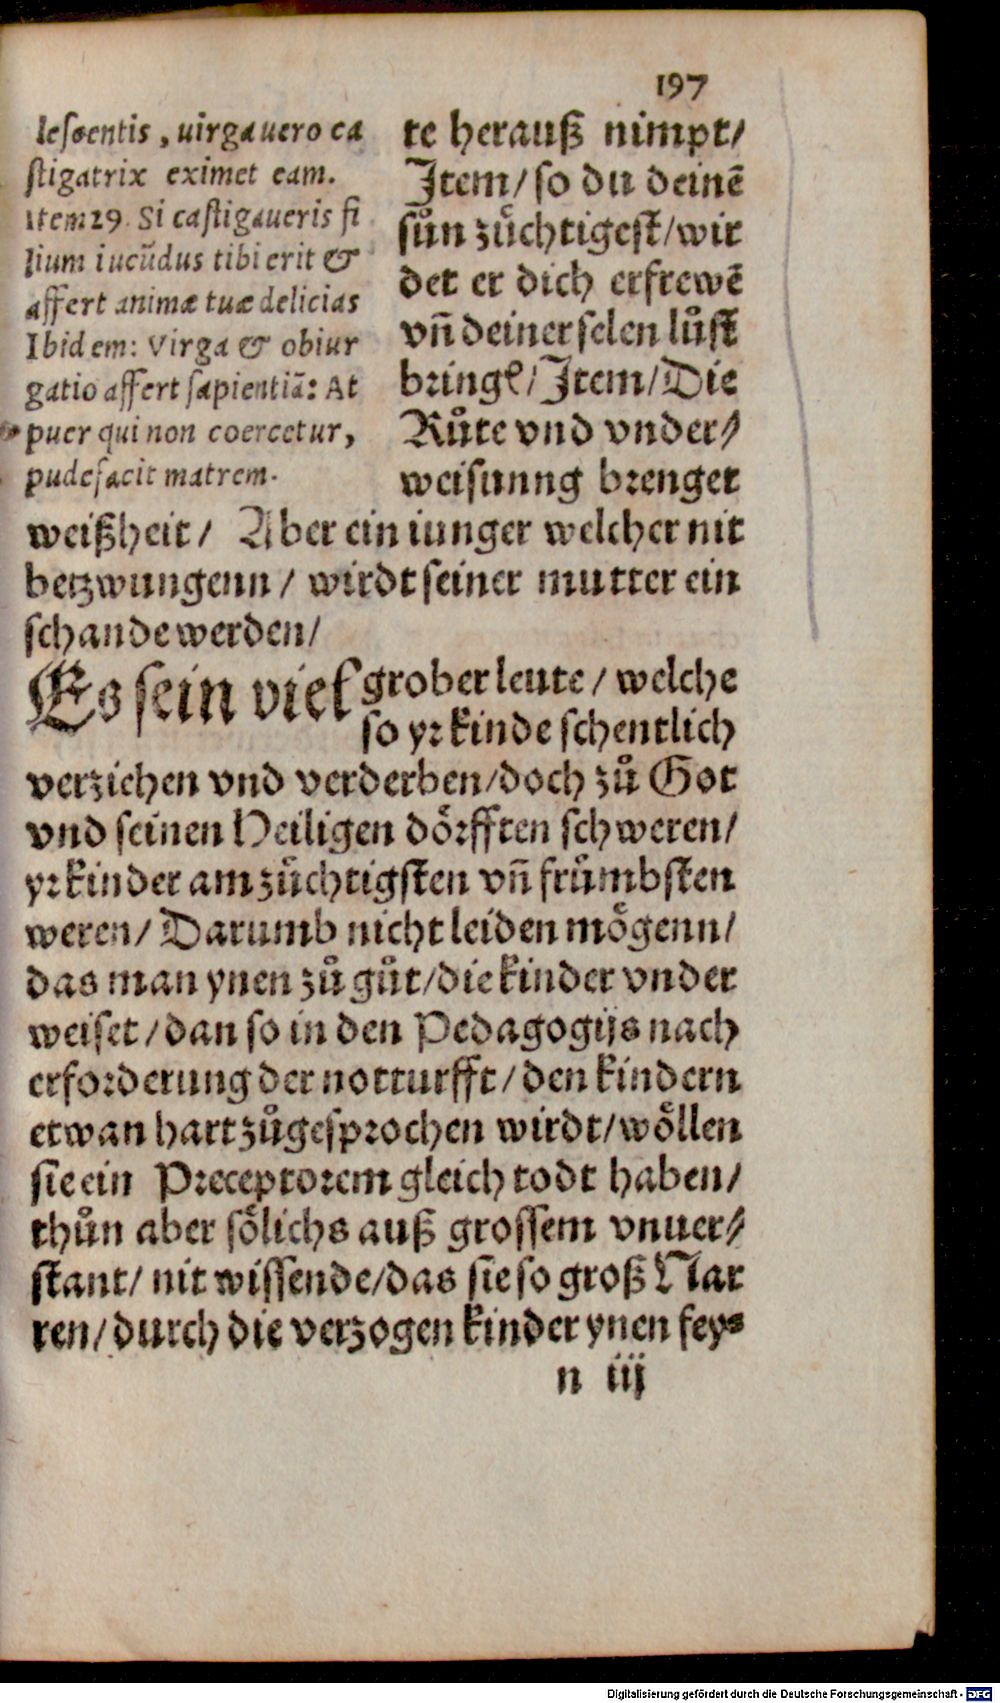 197
lescentis, uirga uero ca
stigatrix eximet eam.
Item 29. Si castigaueris fi
lium iucūdus tibi erit &
affert animæ tuæ delicias
Ibidem: Virga & obiur
gatio affert sapientiā: At
puer qui non coercetur,
pudefacit matrem.
te herauß nimpt/
Item/ so du deinē
sůn zůchtigest/wir
det er dich erfrewē
vñ deiner selen lůst
bringē/ Item/ Die
Růte vnd vnder⸗
weisunng brenget
weißheit/ Aber ein iunger welcher nit
betzwungenn/ wirdt seiner mutter ein
schande werden/
Es sein viel grober leute/ welche
so yr kinde schentlich
verziehen vnd verderben/doch zů Got
vnd seinen Heiligen dörfften schweren/
yr kinder am zůchtigsten vñ frůmbsten
weren/ Darumb nicht leiden mögenn/
das man ynen zů gůt/die kinder vnder
weiset/dan so in den Pedagogijs nach
erforderung der notturfft/den kindern
etwan hart zůgesprochen wirdt/wöllen
sie ein Preceptorem gleich todt haben/
thůn aber sölichs auß grossem vnuer⸗
stant/ nit wissende/das sie so groß Nar
ren/durch die verzogen kinder ynen fey⸗
n iij
Digitalisierung gefördert durch die Deutsche Forschungsgemeinschaft - DFG